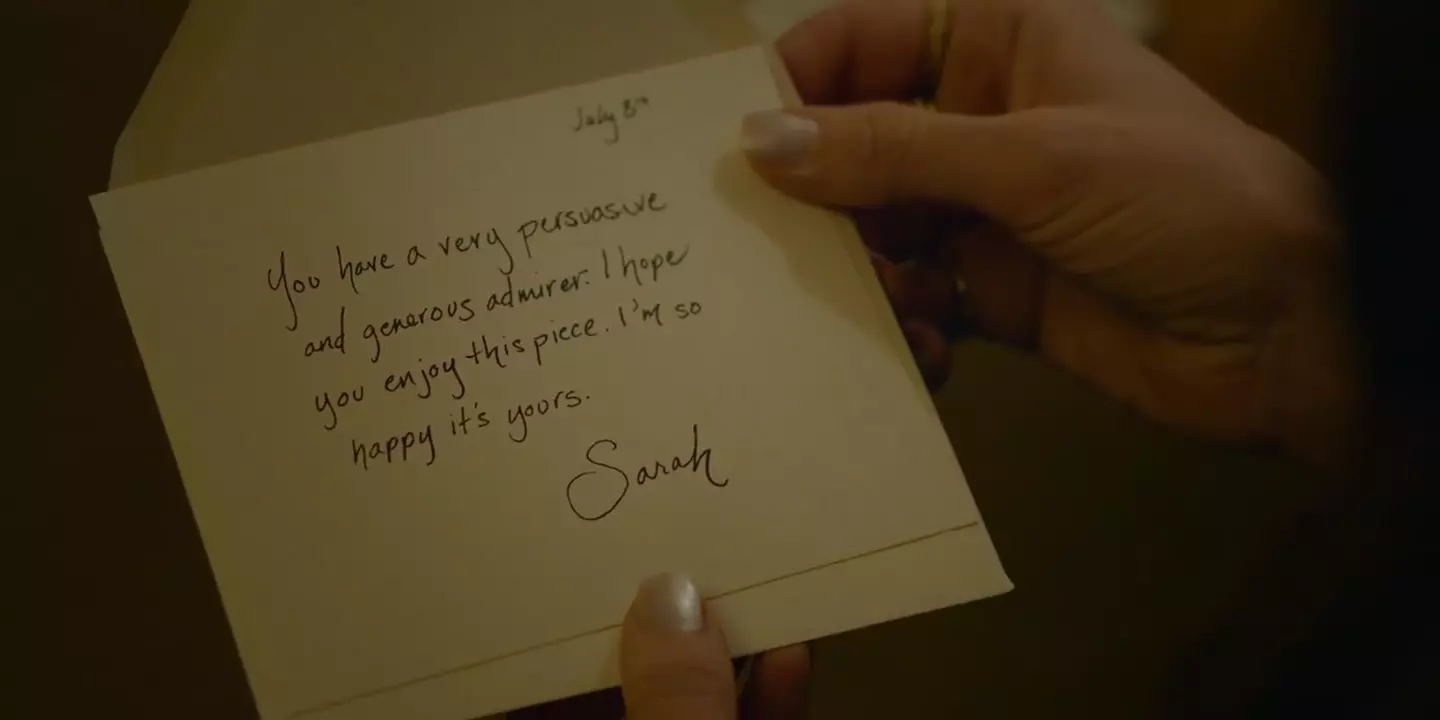 July 8th
You have a very persuasive
and generous admirer. I hope
you enjoy this piece. I'm so
happy it's yours.
Sarah